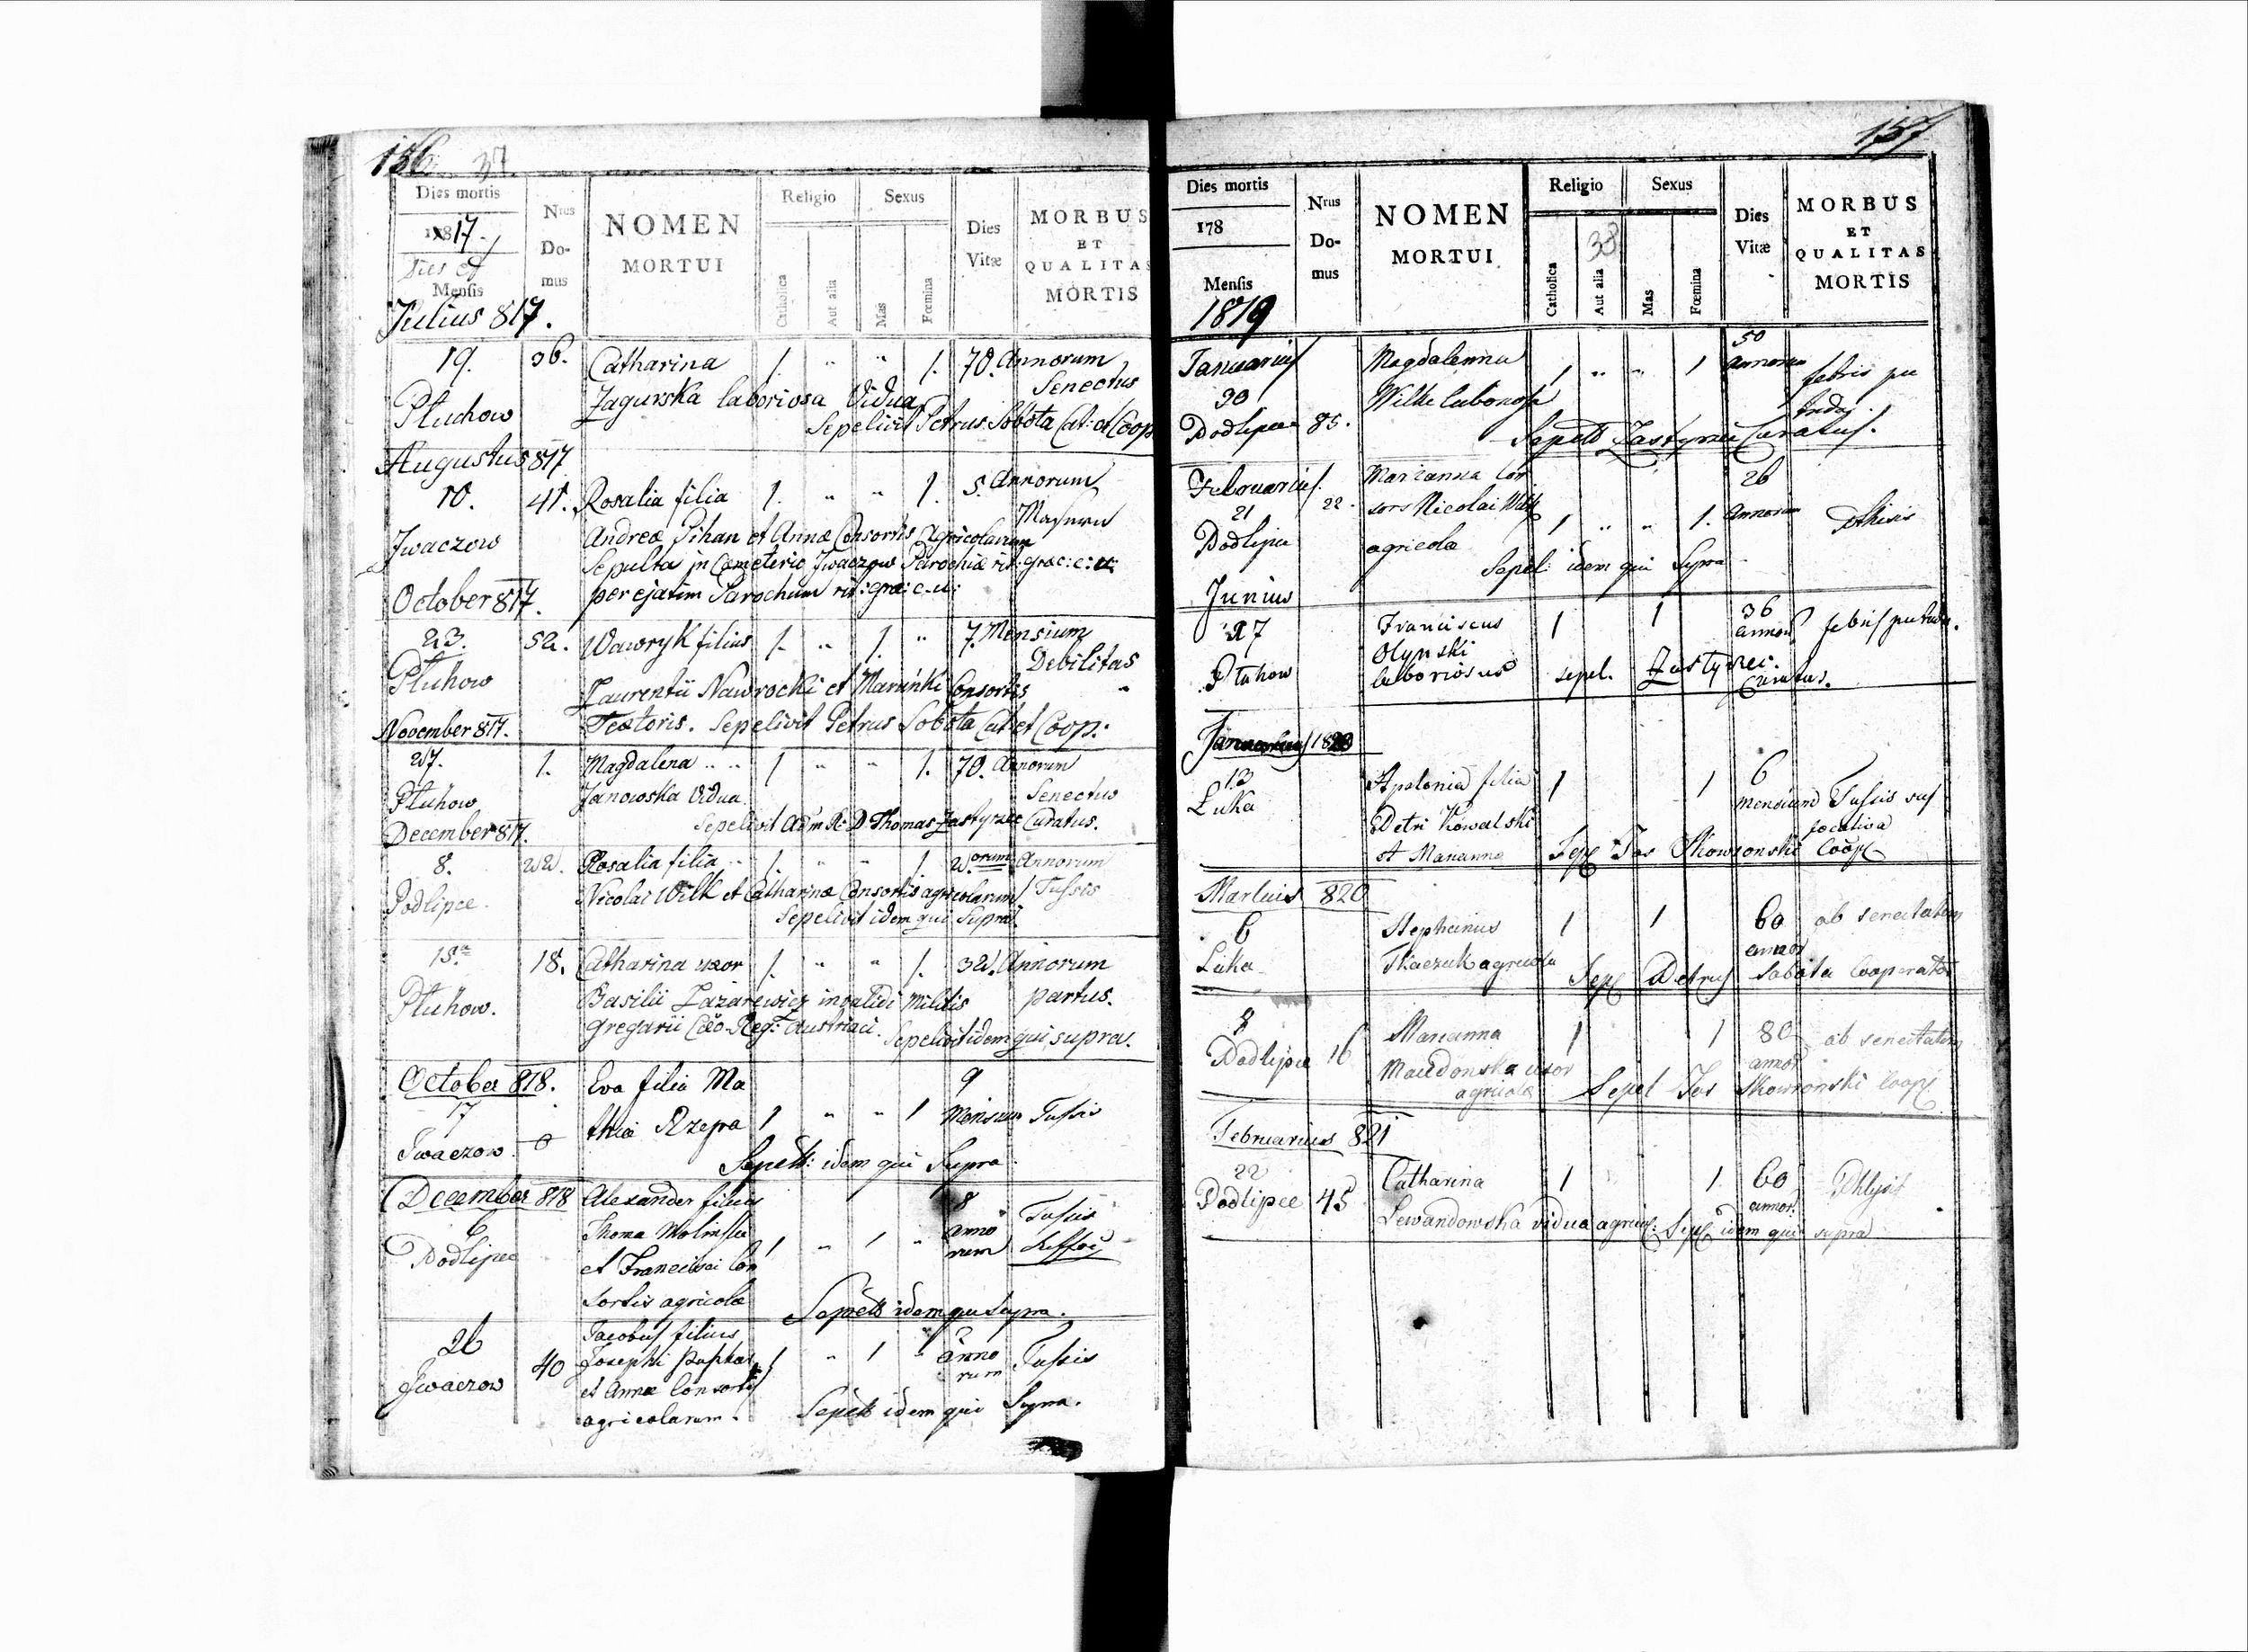 156. 37.
Dies mortis
1817.
Dies et
Mensis
Nrus
Do-
mus
NOMEN
MORTUI
Religio
Catholica
Aut alia
Sexus
Mas
Fœmina
Dies
Vitæ
MORBUS
ET
QUALITAS
MORTIS
Julius 817.
19. 36. Catharina 1. " " 1. 70. Annorum
Senectus
Pluchow Zagurska laboriosa Vidua
Sepelivit Petrus Sobota Cat: et Coop
Augustus 817
10. 41. Rosalia filia 1. " " 1. 5. Annorum
Jwaczow Andreæ Pihan et Annæ Consortis Agricolarum
Sepulta in Cœmeterio Jwaczow Parochiæ rit: græc: c: u:
per ejatim Parochum rit: græ: c. u:
October 817.
23. 52. Wawryk filius 1. " 1. " 7. Mensium
Debilitas
Pluhow Laurentii Nawrocki et Marinki Consortis "
Textoris. Sepelivit Petrus Sobota Cat et Coop:
November 817.
27. 1. Magdalena " " 1 " " 1. 70. Annorum
Pluhow Janowska Vidua Senectus
Sepelivit Adm R: D Thomas Zastyrzec Curatus.
December 817.
8. 22. Rosalia filia " 1. " " 1. 2.orum Annorum
Podlipce. Nicolai Wilk et Catharinæ Consortis agricolarum Tussis
Sepelivit idem qui Supra.
18. Catharina uxor 1. " " 1. 32. Annorum
Pluhow. Basilii Lazarewicz invalidi Militis partus.
Gregarii Cæo-Reg: Austriaci. Sepelivit idem qui supra.
October 818. Eva filia Ma 9
17 thiæ Rzepa 1 " " 1 Mensium Tussis
Jwaczow 0
Sepelt: idem qui Supra
December 818 Alexander filius 8 Tussis
6 Thoma 1 " 1 " anno
Podlipce rum
et Con
sortis agricolæ Sepelt idem qui Supra.
26 Jacobus filius 2
Jwaczow 40 Josephi 1 " 1 " anno Tussis
et Annæ Consortis rum
agricolarum. Sepelt idem qui Supra.
157
Dies mortis
178
Mensis
1819
Nrus
Do-
mus
NOMEN
MORTUI
Religio
Catholica
Aut alia
38
Sexus
Mas
Fœmina
Dies
Vitæ
MORBUS
ET
QUALITAS
MORTIS
Januarius Magdalenna 1 " " 1 50
annorum febris pu
30 Wilk
Podlipce 85. Sepelt Zastyrzec Curatus.
Februarius Marianna Con 26
21 22. sors Nicolai Wilk 1 " " 1. annorum
Podlipce agricolæ
Sepel: idem qui Supra
Junius
27 Franciscus 1 1 36
annor febris putrida.
Pluhow Olynski
laboriosus sepel. Zastyrzec.
Curatus.
Januarius 1820
13 Apolonia filia 1 1 6
Luka mensium Tussis suf
focativa
Petri Kowalski
et Marianna Sep Jos Skowronski Coop
Martius 820
6 Stephanus 1 1 60 ab senectutem
Luka Tkaczuk agricola annor
Sep Petrus Sobota Cooperator
8 Marianna 1 1 80 ab senectutem
Podlipce 16 uxor annor
agricolæ Sepel Jos Skowronski Coop
Februarius 821
22 Catharina 1 1 60
Podlipce 45 annor
Lewandowska vidua agricol: Sep idem qui supra